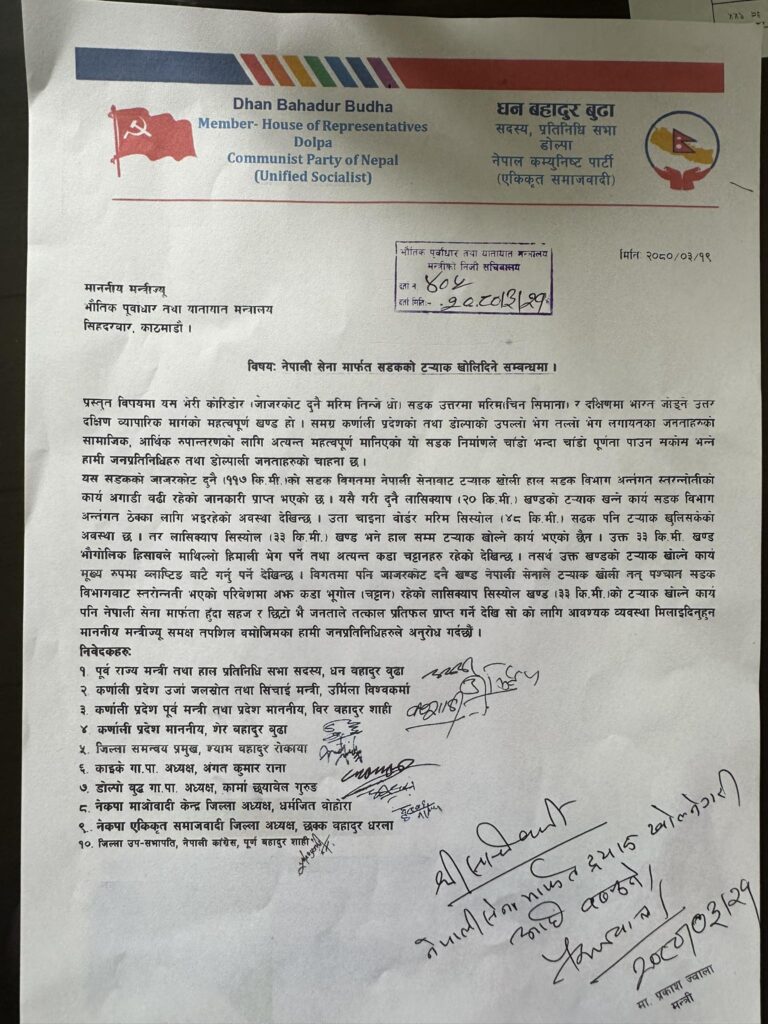 Dhan Bahadur Budha
Member- House of Representatives
Dolpa
Communist Party of Nepal
(Unified Socialist)
धन बहादुर बुढा
सदस्य, प्रतिनिधि सभा
डोल्पा
नेपाल कम्युनिष्ट पार्टी
(एकिकृत समाजवादी)
भौतिक पूर्वाधार तथा यातायात मन्त्रालय
मन्त्रीको निजी सचिवालय
दर्ता नं ४०५
दर्ता मितिः- २०८०/३/२१
मितिः २०८०/०३/१९
माननीय मन्त्रीज्यू
भौतिक पूर्वाधार तथा यातायात मन्त्रालय
सिंहदरवार, काठमाडौं ।
विषयः नेपाली सेना मार्फत सडकको टर्‍याक खोलिदिने सम्बन्धमा ।
प्रस्तुत विषयमा यस भेरी कोरिडोर (जाजरकोट दुनै मरिम तिन्जे धो) सडक उत्तरमा मरिम(चिन सिमाना) र दक्षिणमा भारत जोड्ने उत्तर
दक्षिण व्यापारिक मार्गको महत्वपूर्ण खण्ड हो । समग्र कर्णाली प्रदेशको तथा डोल्पाको उपल्लो भेग तल्लो भेग लगायतका जनताहरुको
सामाजिक, आर्थिक रुपान्तरणको लागि अत्यन्त महत्वपूर्ण मानिएको यो सडक निर्माणले चाँडो भन्दा चाँडो पूर्णता पाउन सकोस भन्ने
हामी जनप्रतिनिधिहरु तथा डोल्पाली जनताहरुको चाहना छ ।
यस सडकको जाजरकोट दुनै (११७ कि.मी.)को सडक विगतमा नेपाली सेनावाट टर्‍याक खोली हाल सडक विभाग अर्न्तगत स्तरन्नोतीको
कार्य अगाडी वढी रहेको जानकारी प्राप्त भएको छ । यसै गरी दुनै लासिक्याप (२० कि.मी.) खण्डको टर्‍याक खन्ने कार्य सडक विभाग
अन्तंगत ठेक्का लागि भइरहेको अवस्था देखिन्छ । उता चाइना वोर्डर मरिम सिस्योल (४८ कि.मी.) सढक पनि टर्‍याक खुलिसकेको
अवस्था छ । तर लासिक्याप सिस्योल (३३ कि.मी.) खण्ड भने हाल सम्म टर्‍याक खोल्ने कार्य भएको छैन । उक्त ३३ कि.मी. खण्ड
भौगोलिक हिसावले माथिल्लो हिमाली भेग पर्ने तथा अत्यन्त कडा चट्टानहरु रहेको देखिन्छ । तसर्थ उक्त खण्डको टर्‍याक खोल्ने कार्य
मूख्य रुपमा व्लाष्टिङ वाटै गर्नु पर्ने देखिन्छ । विगतमा पनि जाजरकोट दुनै खण्ड नेपाली सेनाले टर्‍याक खोली तत् पश्चात सडक
विभागवाट स्तरोन्नती भएको परिवेशमा अझ कडा भूगोल (चट्टान) रहेको लासिक्याप सिस्योल खण्ड (३३ कि.मी.)को टर्‍याक खोल्ने कार्य
पनि नेपाली सेना मार्फत हुँदा सहज र छिटो भै जनताले तत्काल प्रतिफल प्राप्त गर्ने देखि सो को लागि आवश्यक व्यवस्था मिलाइदिनुहुन
माननीय मन्त्रीज्यू समक्ष तपशिल वमोजिमका हामी जनप्रतिनिधिहरुले अनुरोध गर्दछौं ।
निवेदकहरुः
१. पूर्व राज्य मन्त्री तथा हाल प्रतिनिधि सभा सदस्य, धन वहादुर बुढा
२. कर्णाली प्रदेश उर्जा जलस्रोत तथा सिंचाई मन्त्री, उर्मिला विश्वकर्मा
३. कर्णाली प्रदेश पूर्व मन्त्री तथा प्रदेश माननीय, विर वहादुर शाही
४. कर्णाली प्रदेश माननीय, शेर वहादुर बुढा
५. जिल्ला समन्वय प्रमुख, श्याम बहादुर रोकाया
६. काइके गा.पा. अध्यक्ष, अंगत कुमार राना
७. डोल्पो बुद्ध गा.पा. अध्यक्ष, कार्मा छ्यावेल गुरुङ
८. नेकपा माओवादी केन्द्र जिल्ला अध्यक्ष, धर्मजित वोहोरा
९. नेकपा एकिकृत समाजवादी जिल्ला अध्यक्ष, छक्क वहादुर धरला
१०. जिल्ला उप-सभापति, नेपाली कांग्रेस, पूर्ण बहादुर शाही
नेपाली सेना मार्फत ट्र्याक खोल्नेगरी
अघि बढाउने।
२०८०/०३/२१
मा. प्रकाश ज्वाला
मन्त्री